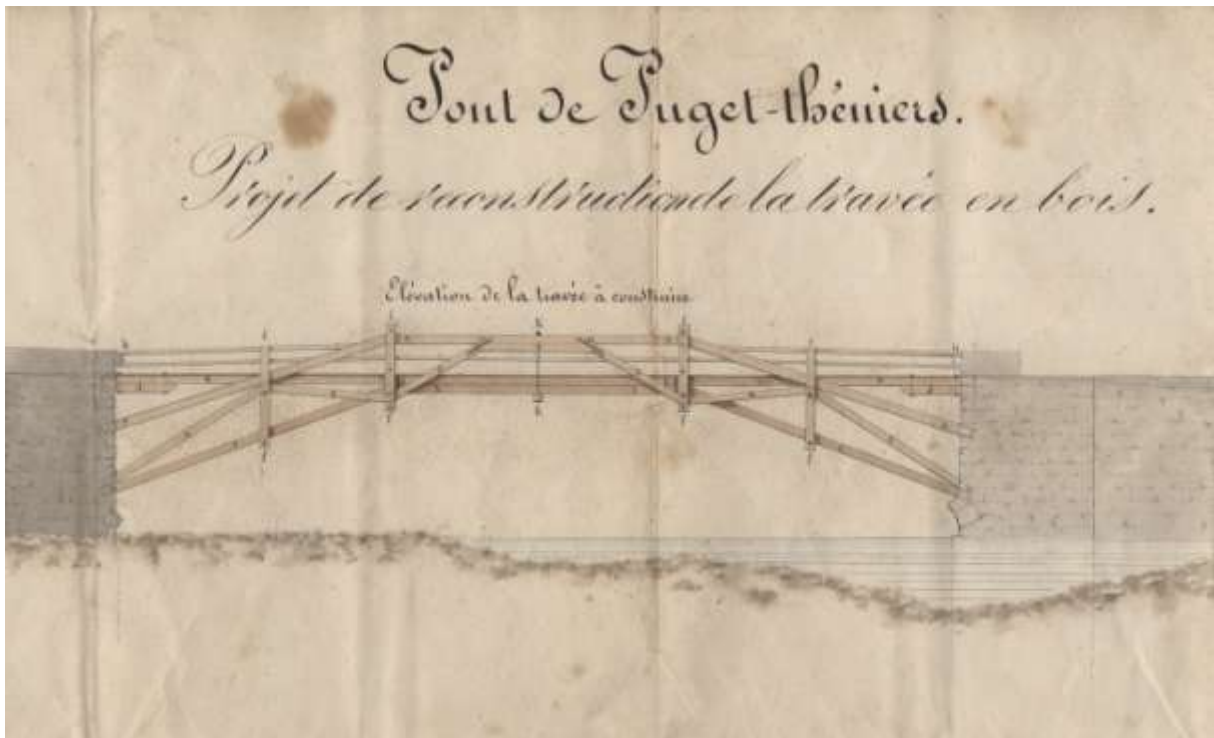 Pont de Puget-théniers.
Projet de reconstruction de la travée en bois.
Élévation de la travée à construire